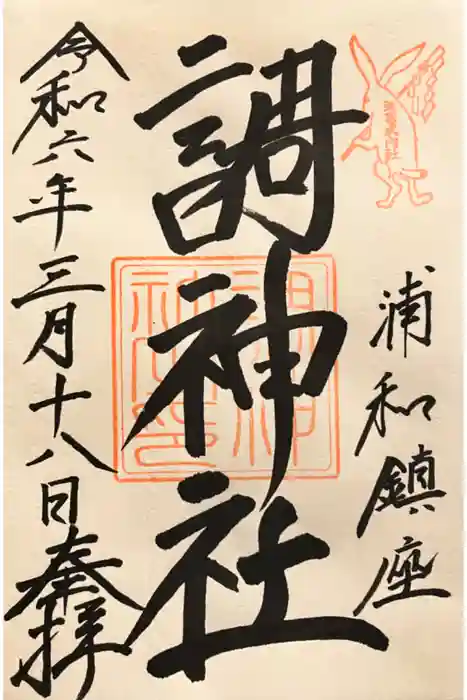 浦和鎮座
調神社
令和六年三月十八日奉拝